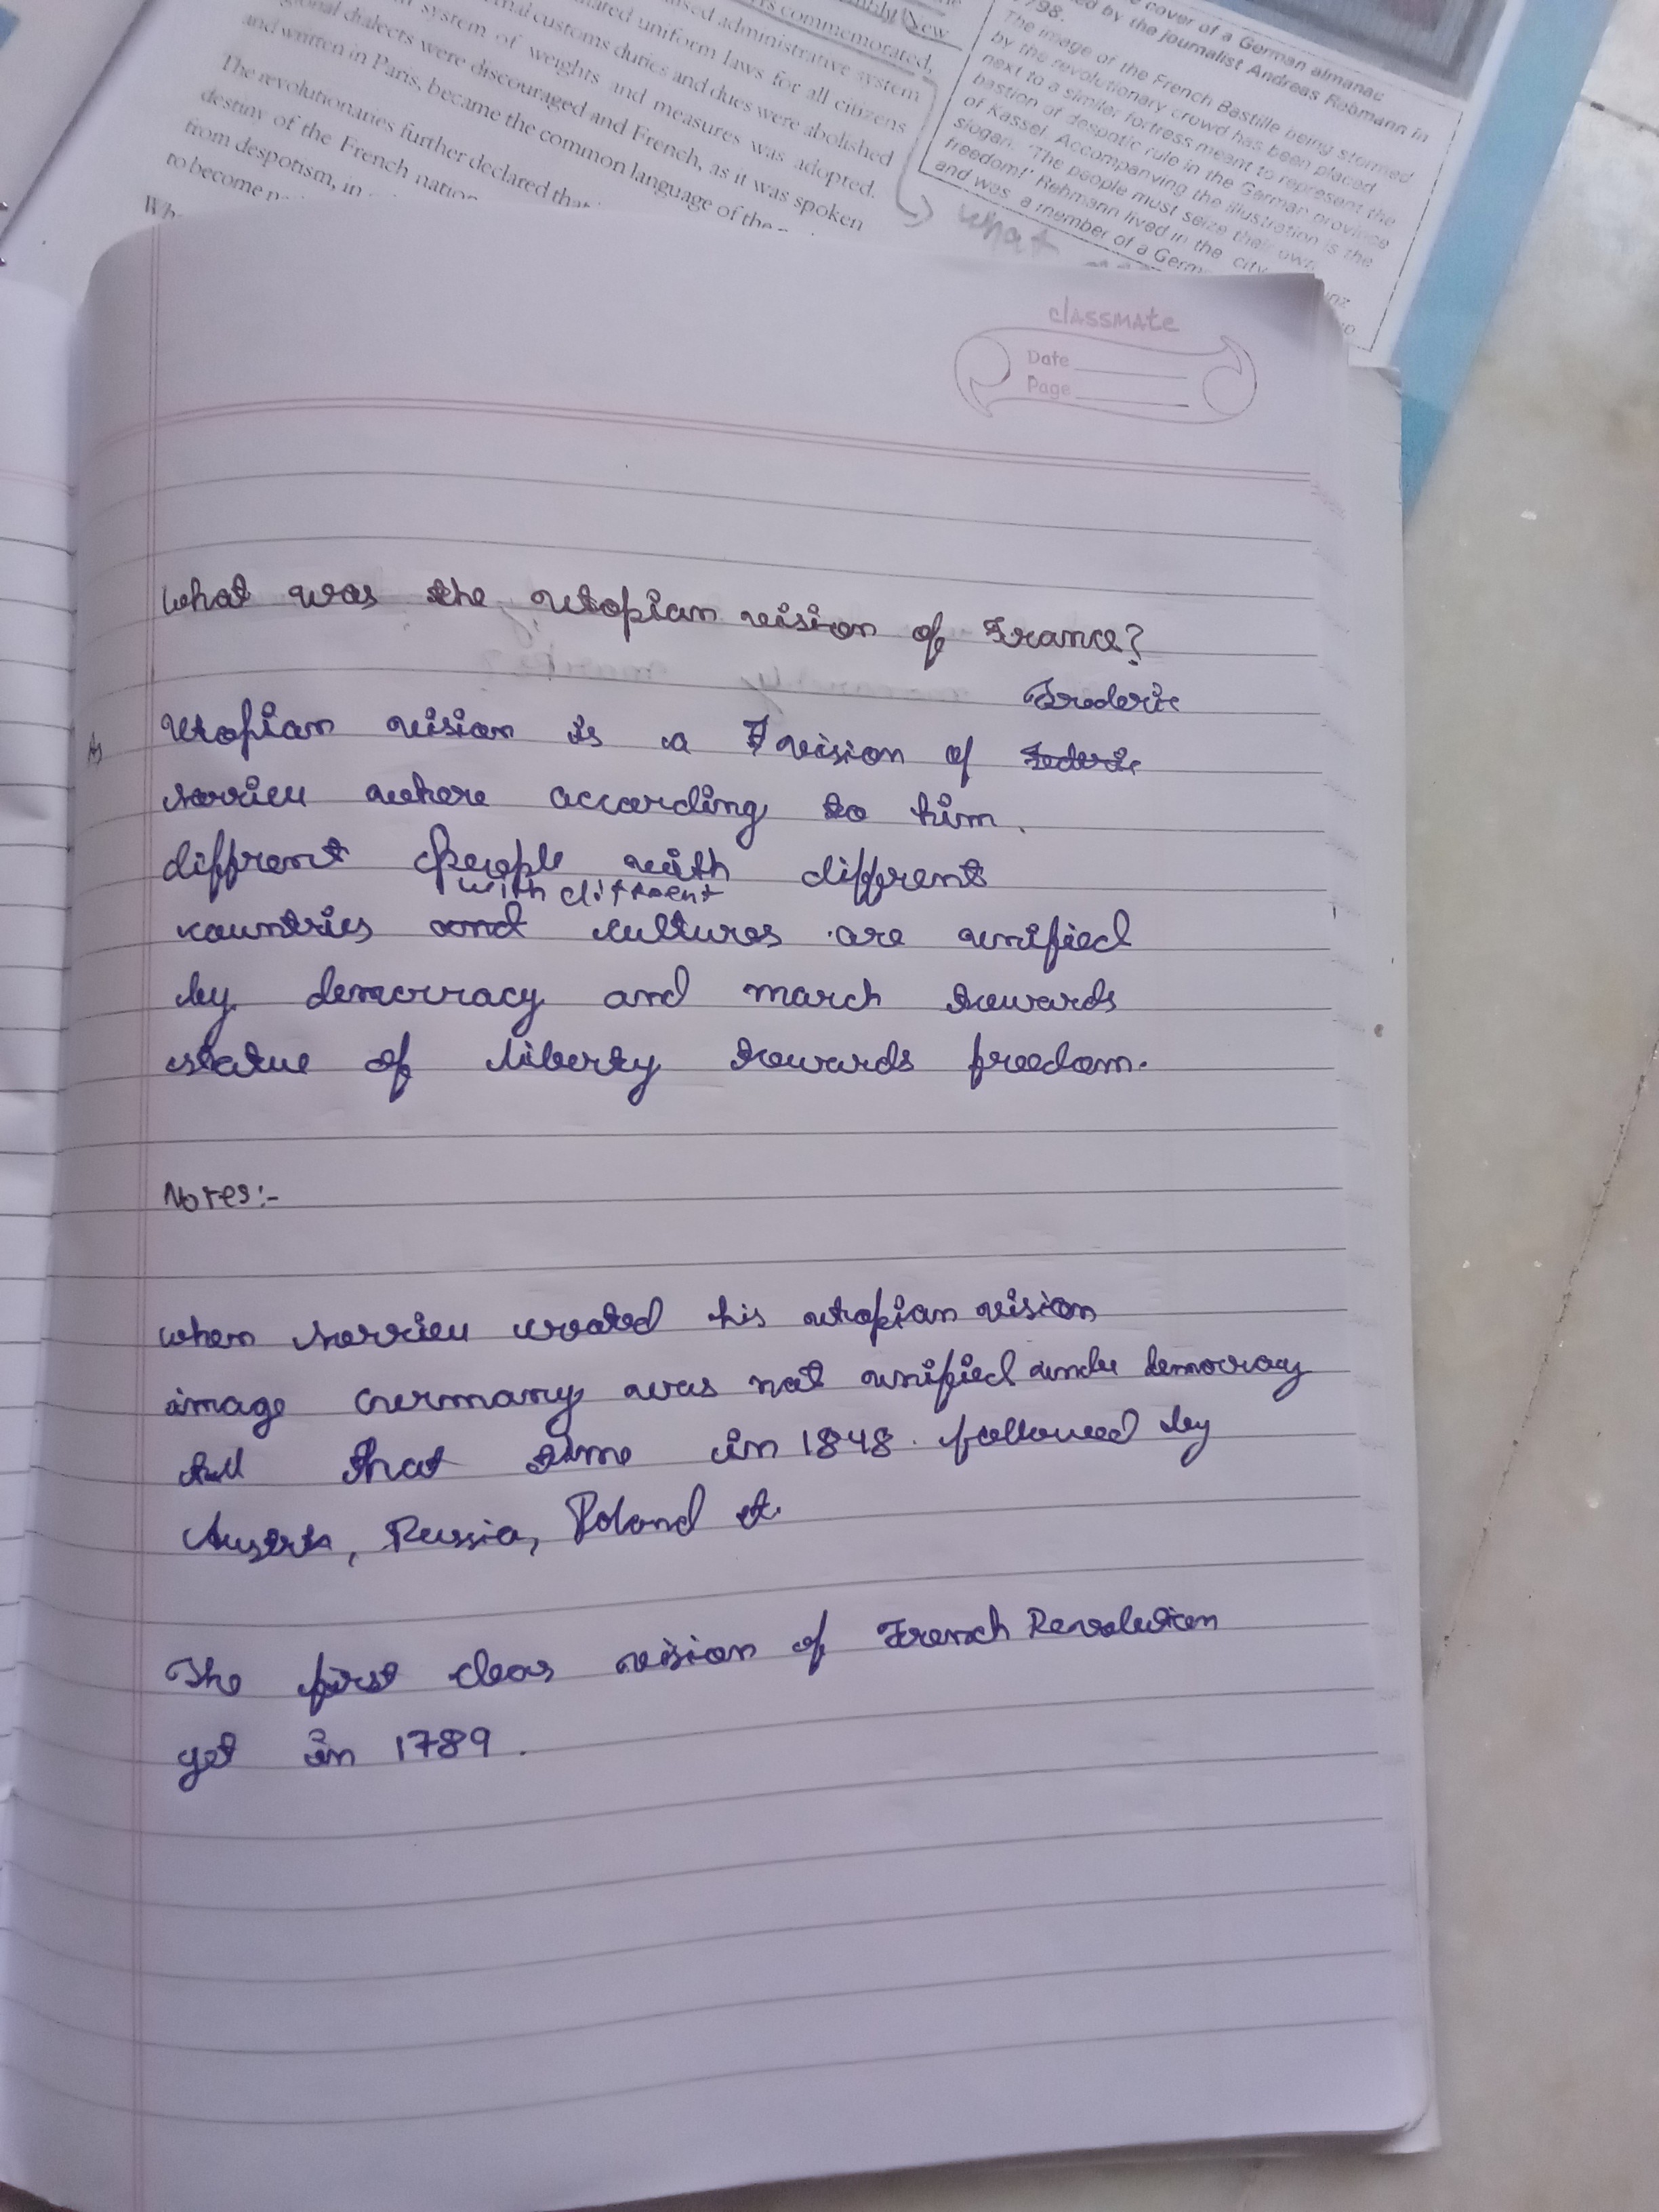 cover of a German almanac
ed by the journalist Andreas Rebmann in
1798.
The image of the French Bastille being stormed
by the revolutionary crowd has been placed
next to a similar fortress meant to represent the
bastion of despotic rule in the German province
of Kassel. Accompanying the illustration is the
slogan: 'The people must seize their own
freedom!' Rebmann lived in the city
and was a member of a Germ
commemorated,
ised administrative system
uniform laws for all citizens
customs duties and dues were abolished
system of weights and measures was adopted.
dialects were discouraged and French, as it was spoken
and written in Paris, became the common language of the
The revolutionaries further declared that
destiny of the French nation
from despotism, in
to become
what
classmate
Date
Page
What was the utopian vision of France?
Frederic
Utopian vision is a vision of Federic
sorrieu where according to him.
diffrent people with different
with different
countries and cultures are unified
by democracy and march towards
statue of liberty towards freedom.
Notes:-
when sorrieu created his utopian vision
image Germany was not unified under democracy
till that time in 1848. followed by
Russia, Poland et.
The first clear vision of French Revolution
yet in 1789.